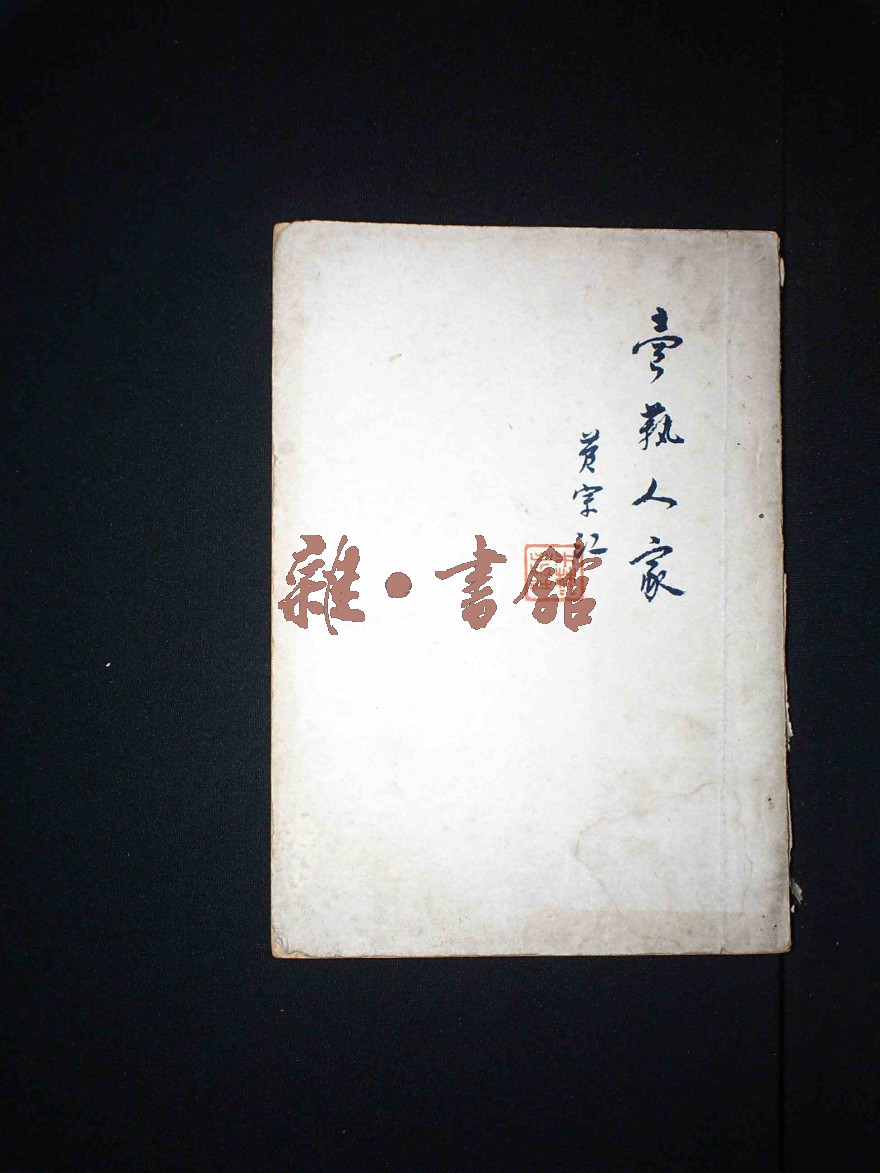 賣藝人家
黄宗江
雜·書館